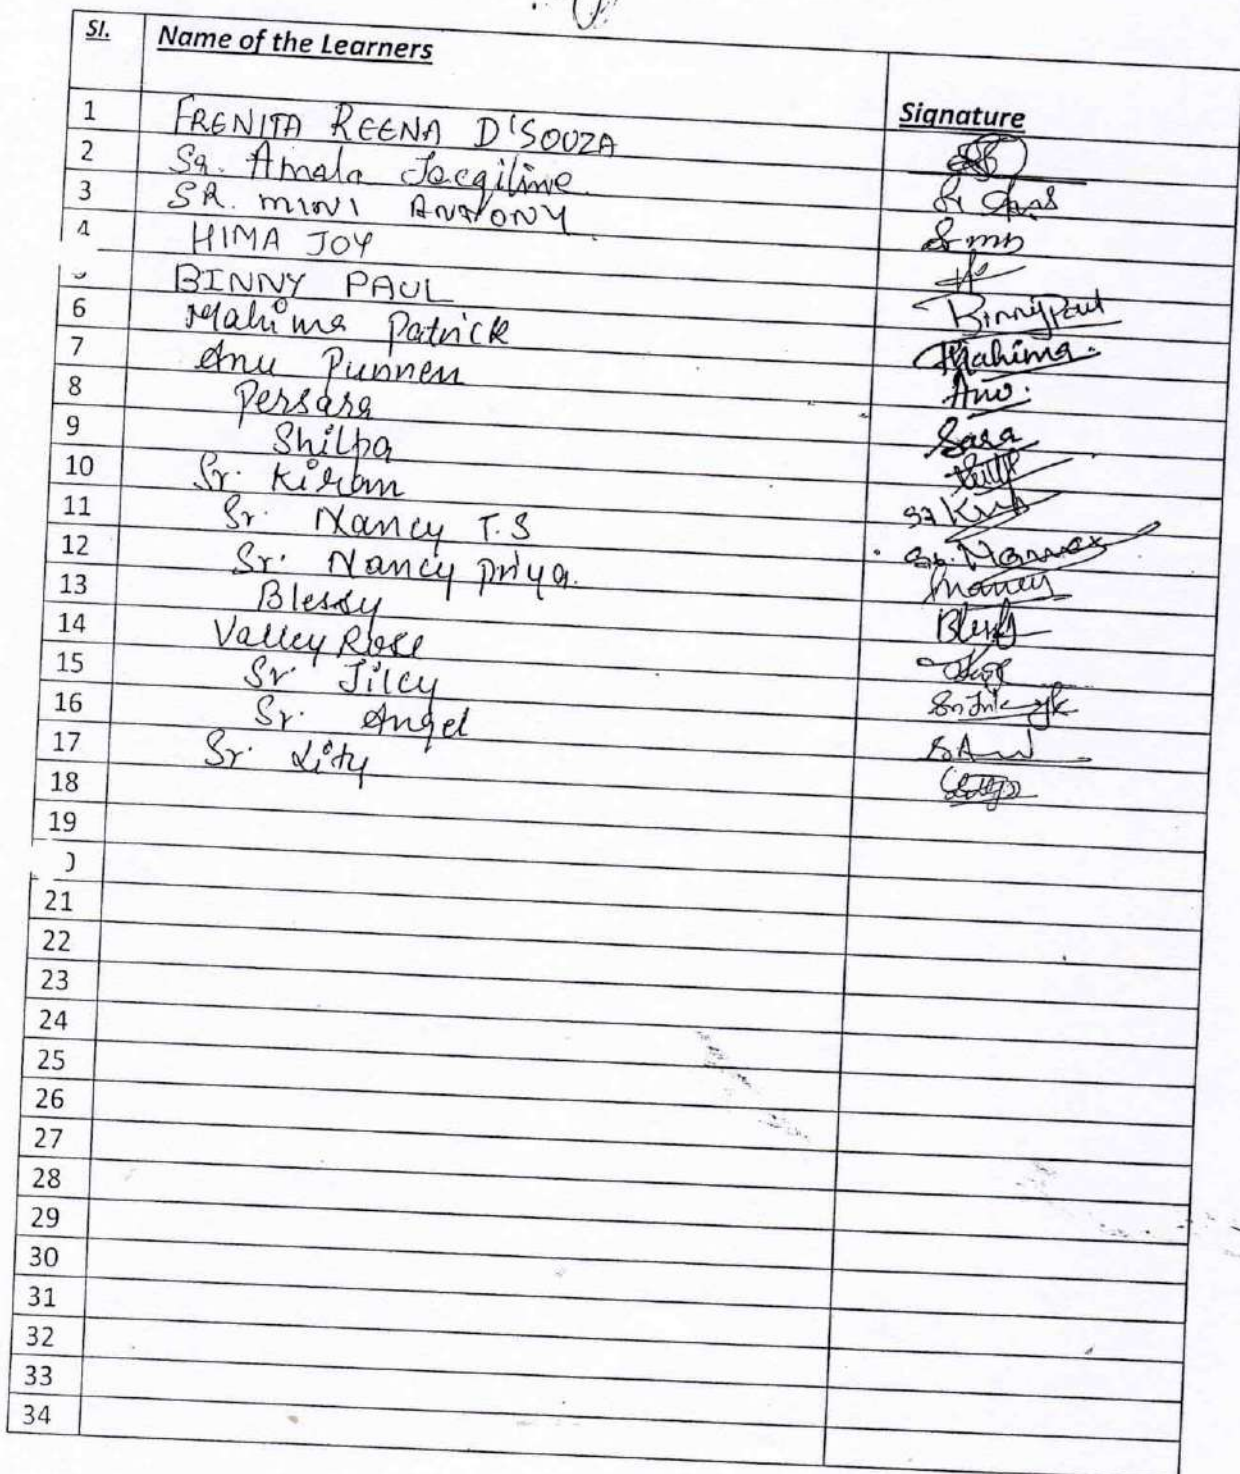 Sl. Name of the Learners Signature
1 FRENITA REENA D'SOUZA
2 Sr. Amala Jacqiline Sr
3 SR. MINI ANTONY
4 HIMA JOY
BINNY PAUL Binny Paul
6 Mahima Patrick Mahima.
7 Anu Punnen Anu.
8 Persara Sara
9 Shilpa
10 Sr. Kiran Sr
11 Sr. Nancy T.S Sr. Nancy
12 Sr. Nancy priya. Nancy
13 Blessy
14 Valley Rose
15 Sr. Jilcy
16 Sr. Angel
17 Sr. Lity
18
19
21
22
23
24
25
26
27
28
29
30
31
32
33
34